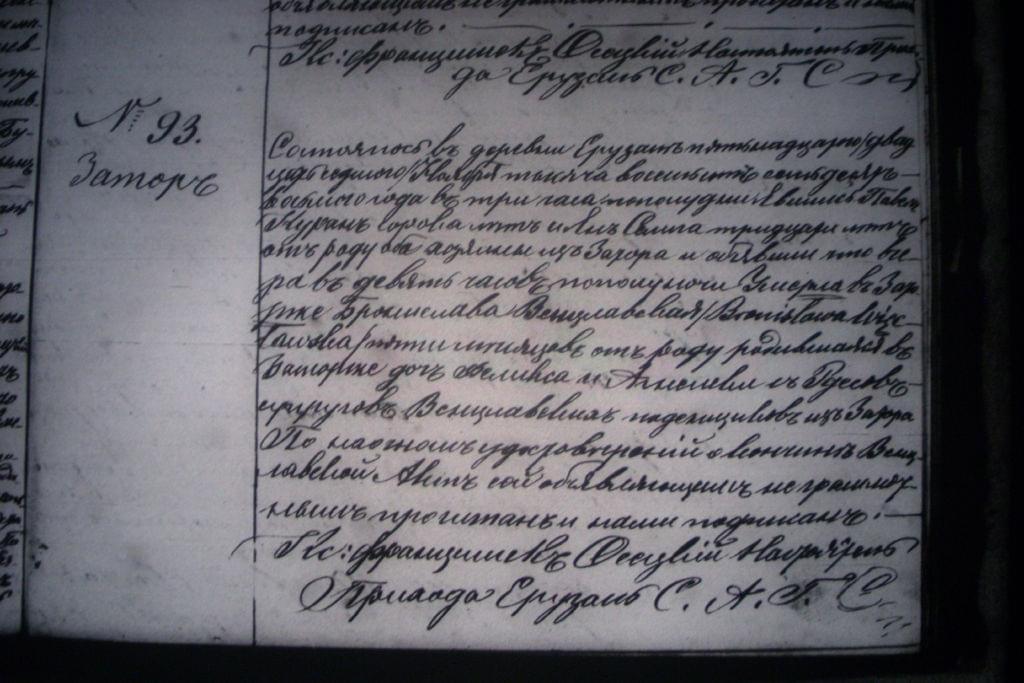 подписанъ.
Кс: Францишекъ Осецкій Настоятель При-
да Ерузаль С. А. Г. С
№ 93.
Заторъ
Состоялось въ деревни Ерузаль пятьнадцатаго/двад
цать седмого/Ноября тысяча восемьсотъ семьдесятъ
восьмого года въ три часа пополудни. Явились Павелъ
Куранъ сорока лѣтъ и Янъ тридцати лѣтъ
отъ роду оба хозяины изъ Затора и объявили что вче-
ра въ девять часовъ пополуночи умерла въ Зато-
рже Брониславa Венцлавская/Bronisława Więc-
ławska/пяти мѣсяцовъ отъ роду родившаяся въ
Заторже дочь Феликса и Анели съ
супруговъ Венцлавскихъ поденщиковъ изъ Затора
По наочномъ удостовѣреніи о кончинѣ Венц-
лавской Актъ сей объявляющимъ неграмот-
нымъ прочитанъ и нами подписанъ.
Кс: Францишекъ Осецкій Настоятель
Прихода Ерузаль С. А. Г. С